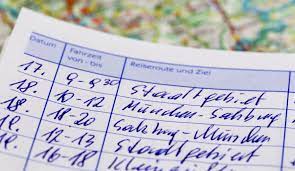 Datum Fahrzeit von - bis Reiseroute und Ziel
17. 9-9³⁰ Stadtgebiet
18. 10-12 München-Salzburg
18. 18-20 Salzburg-München
19. 12-13 Stadtgebiet
19. 16-18